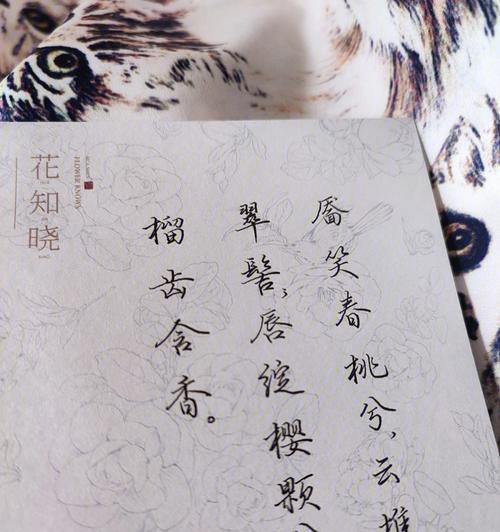 靥笑春桃兮，云堆
翠髻；唇绽樱颗
榴齿含香。
花知晓
FLOWER KNOWS